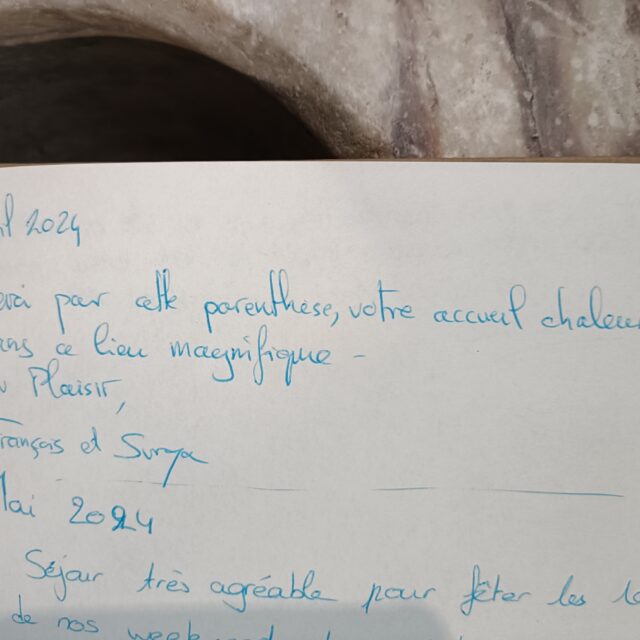 il 2024
erci pour cette parenthèse, votre accueil chaleu
ans ce lieu magnifique -
u Plaisir,
François et Suraya
Mai 2024
Séjour très agréable pour fêter les 
de nos week